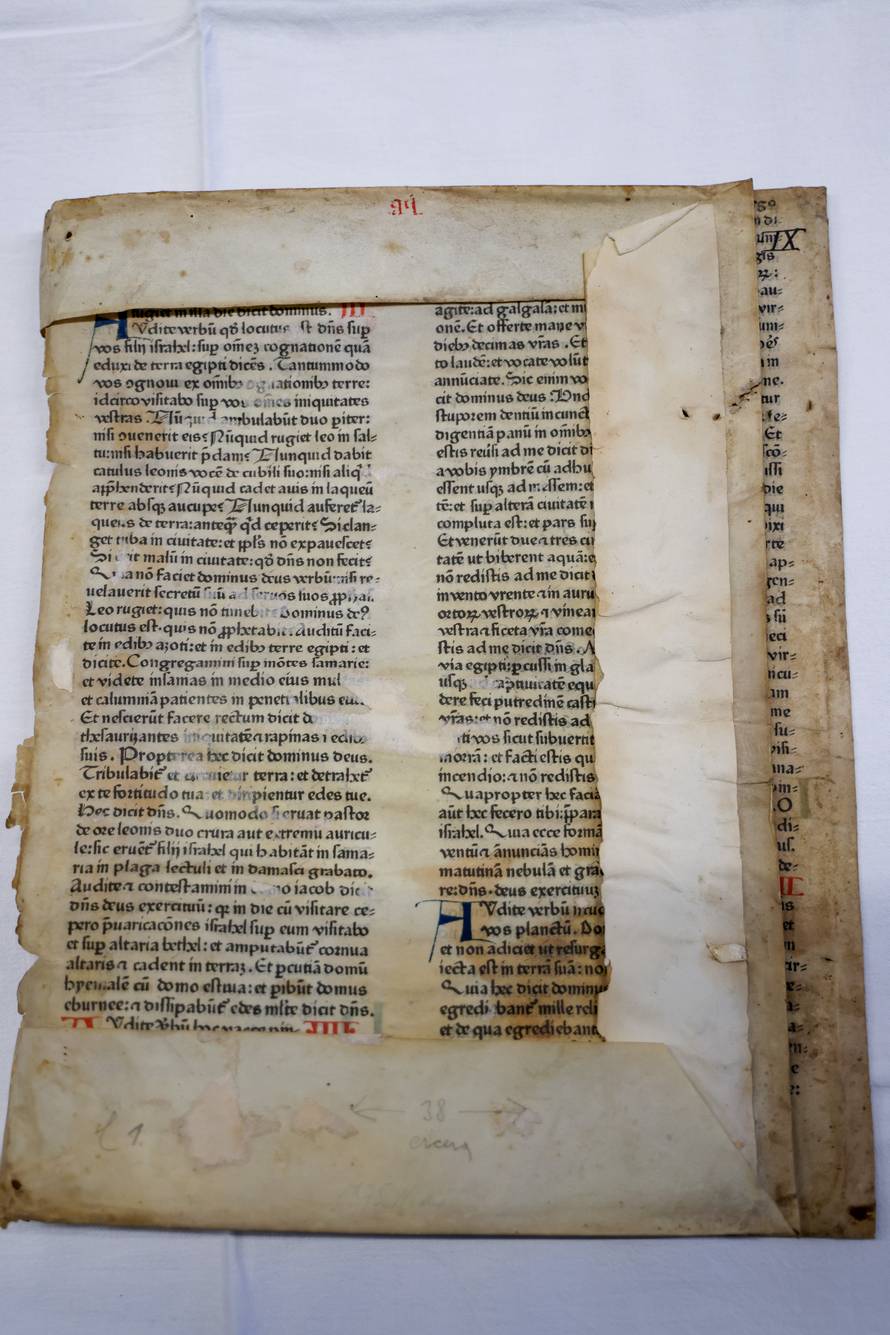 IX
rugiet in illa die dicit dominus. III
AUdite verbū qđ locutus st dñs sup
vos filij israhel: sup om̄eʒ cognationē quā
eduxi de terra egipti dicēs. Tantummodo
vos ꝯgnoui ex om̄ibꝰ ationibꝰ terre:
idcirco visitabo sup vos om̄es iniquitates
vestras. Nūquid ambulabūt duo piter:
nisi ꝯuenerit eis? Nūquid rugiet leo in sal⸗
tu: nisi habuerit p̄dam? Nunquid dabit
catulus leonis vocē de cubili suo: nisi aliqͥd
app̱henderit? Nūquid cadet auis in laqueū
terre absqꝫ aucupe? Nunquid auferet̄ la⸗
queus de terra: anteqꝫ qͥd ceperit? Si clan⸗
get tuba in ciuitate: et ppl̄s nō expauescet?
Si it malū in ciuitate: qđ dñs non fecit?
Quia nō faciet dominus deus verbū: nisi re⸗
uelauerit secretū suū ad seruos suos ꝓphas.
Leo rugiet: quis nō timebit? Dominus de9
locutus est. quis nō ꝓphetabit. Auditū faci⸗
te in edibꝰ azoti: et in edibꝰ terre egipti: et
dicite. Congregamini sup mōtes samarie:
et videte insanias in medio eius mul
et calumniā patientes in penetralibus
Et nescierūt facere rectum dicit
thesaurizantes iniquitatē ⁊ rapinas ı
suis. Propterea hec dicit dominus deus.
Tribulabit̄ et circuietur terra: et detrahet̄
ex te fortitudo tua: et diripientur edes tue.
Hec dicit dñs. Quomodo si eruat pastor
de ore leonis duo crura aut extremū auricu⸗
le: sic eruēt̄ filij israhel qui habitāt in sama⸗
ria in plaga lectuli et in damasci grabato.
Audite ⁊ contestamini in iacob
dñs deus exercituū: qꝛ in die cū visitare ce⸗
pero p̄uaricacōnes israhel sup eum visitabo
et sup altaria bethel: et amputabūt̄ cornua
altaris ⁊ cadent in terraʒ. Et pcutiā domū
hyemalē cū domo estiua: et pibūt domus
eburnee: ⁊ dissipabūt̄ edes ml̄te dicit dñs.
AUdite v̄bū hoc vacce pin⸗ IIII
agite: ad galgalā: et mı
onē. Et offerte mane v
diebꝰ decimas vr̄as. Et
to laudē: et vocate volūt
annūciate. Sic enim vo
cit dominus deus: Vnd
stuporem dentiū in cunct
digentiā panū in om̄ibꝰ
estis reūsi ad me dicit di
a vobis ymbrē cū adhu
essent usqꝫ ad messem: et
tē: et sup alterā ciuitatē ı
compluta est: et pars sup
Et venerūt due ⁊ tres cı
tatē ut biberent aquā: e
nō redistis ad me dicit
in vento vrente ⁊ in auru
ortoꝝ vestroꝝ ⁊ vinea
vestra ⁊ ficeta vr̄a come
stis ad me dicit dñs. A
via egipti: pcussi in gla
usqꝫ captiuitatē equ
dere feci putredinē cast
vr̄as: et nō redistis ad
ti vos sicut subuertit
morrā: et facti estis qu
incendio: ⁊ nō redistis
Quapropter hec facia
aūt hec fecero tibi: p̄para
israhel. Quia ecce formā
ventū ⁊ ānunciās homi
matutinā nebulā et gra
re: dñs. deus exercituuʒ
AUdite verbū
vos planctū. Do
et non adiciet ut resurga
iecta est in terrā suā: no
Quia hec dicit dominu
egredi bant̄ mille reli
et de qua egrediebant
38
l 1.
au⸗
vir⸗
um⸗
m
ne.
tur
Et
scō⸗
ussi
die
qui
ixi
rte
ap⸗
gen⸗
ad
sū
eci
vir⸗
ncu⸗
am
me
su⸗
visi⸗
ma⸗
O
di⸗
us.
de⸗
is
et
m